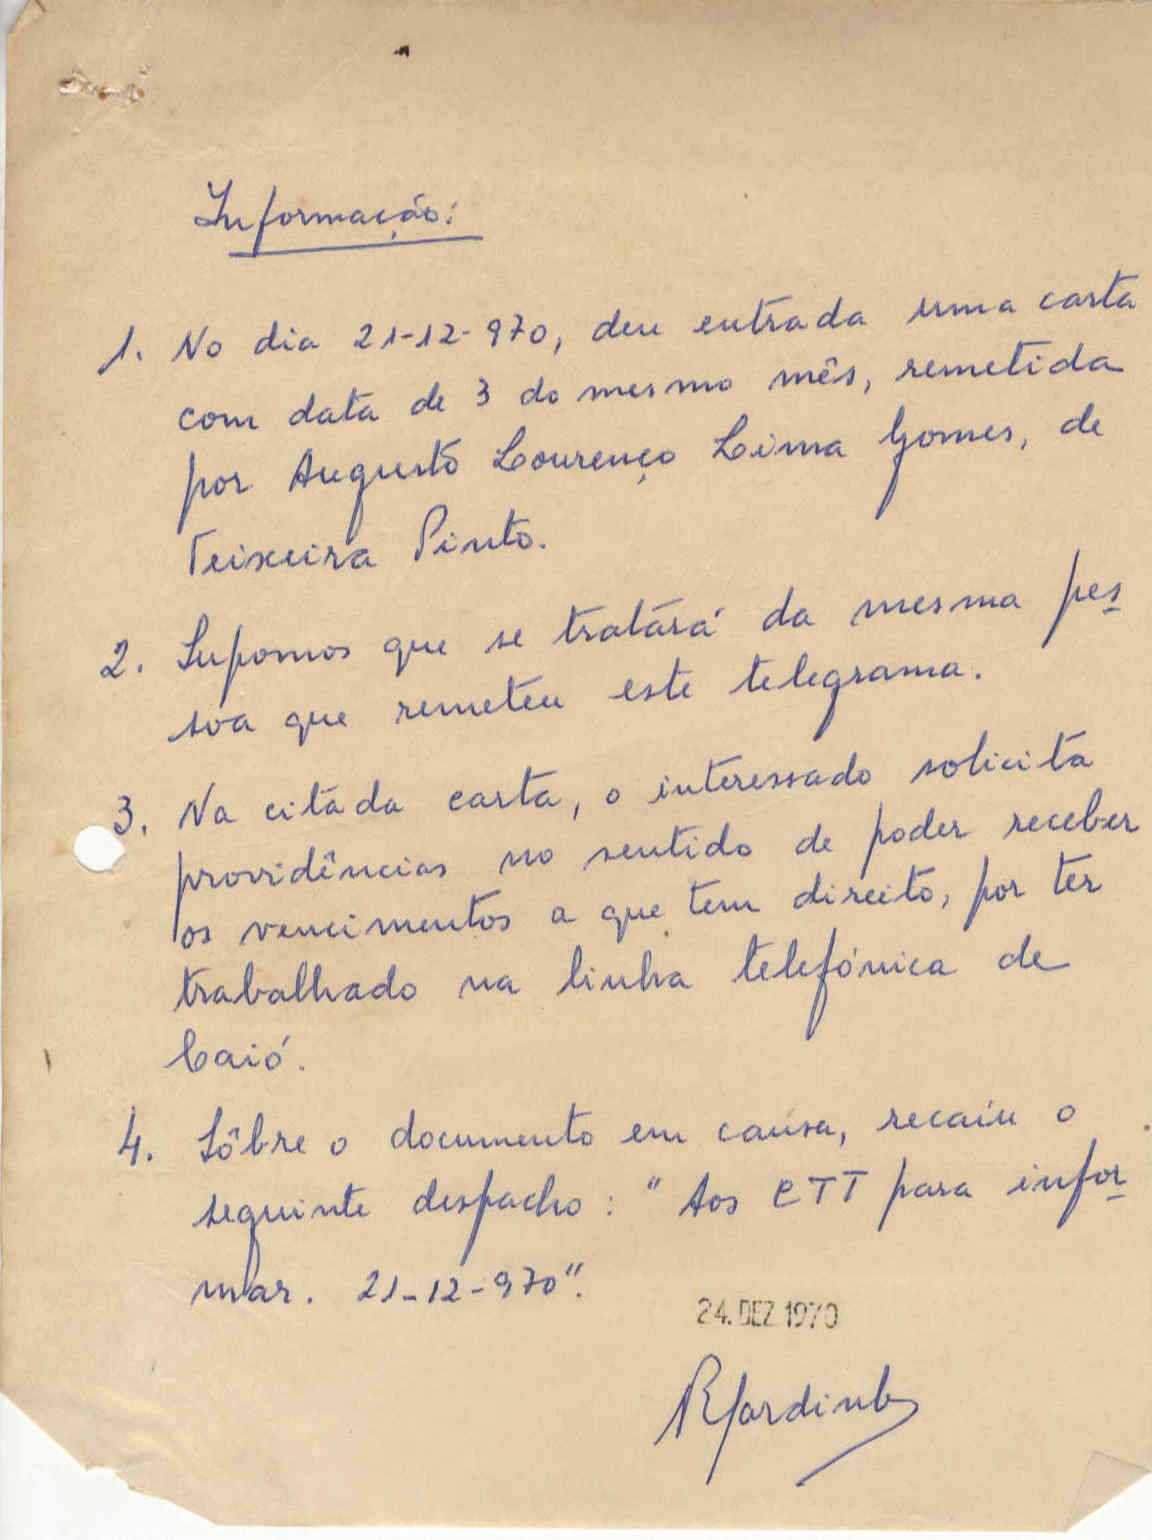 Informação:
1. No dia 21-12-970, deu entrada uma carta
com data de 3 do mesmo mês, remetida
por Augusto Lourenço Lima Gomes, de
Teixeira Pinto.
2. Supomos que se tratará da mesma pes-
soa que remeteu este telegrama.
3. Na citada carta, o interessado solicita
providências no sentido de poder receber
os vencimentos a que tem direito, por ter
trabalhado na linha telefónica de
Caió.
4. Sôbre o documento em causa, recaíu o
seguinte despacho: "Aos CTT para infor-
mar. 21-12-970".
24. DEZ 1970